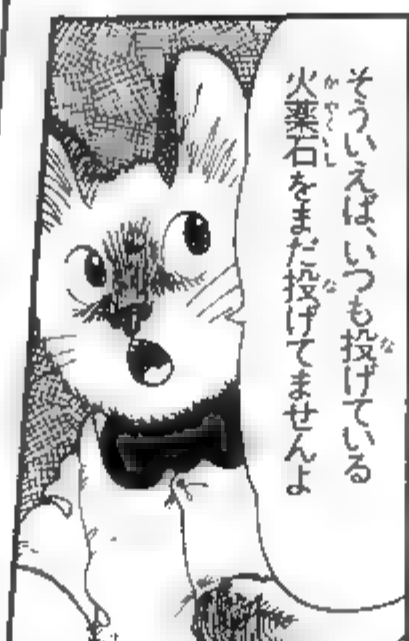 そういえば、いつも投げている
火薬石をまだ投げてませんよ